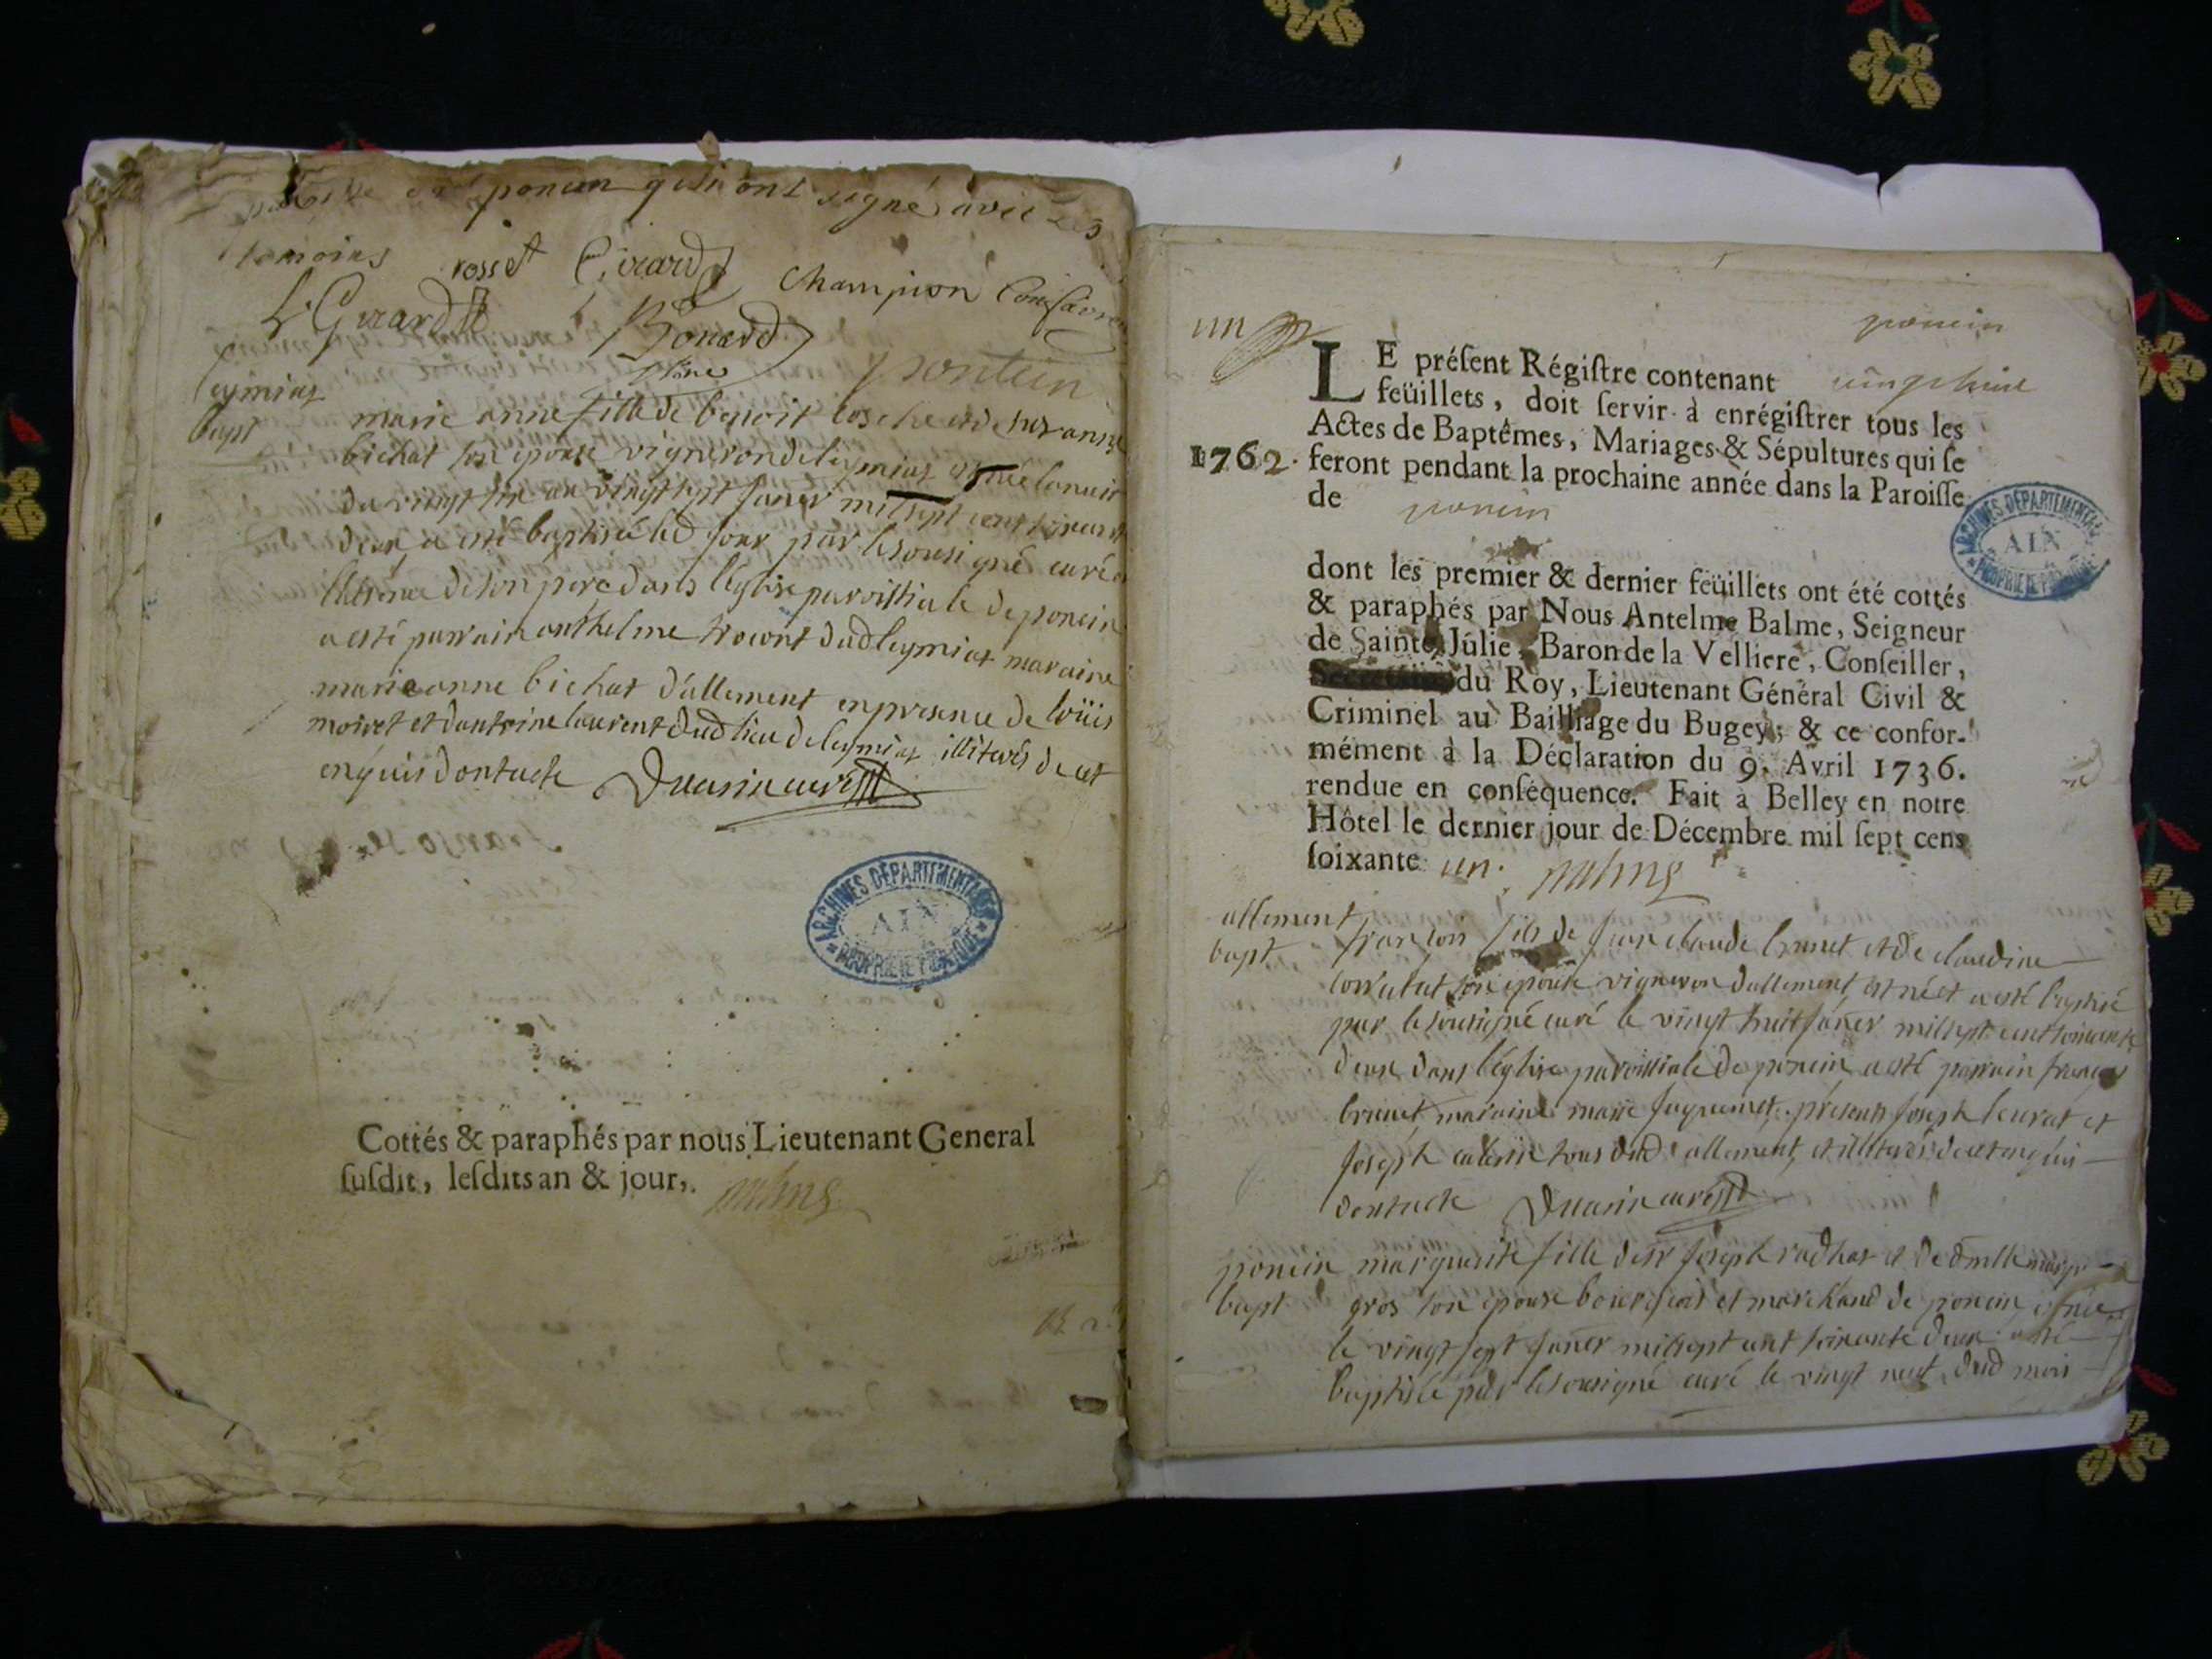 poncin qui ont signé avec les
temoins rosset Girard Champion
L. Girard Bonard
leymiat
bapt marie anne fille de benoit et de suzanne
bichat son epouse vigneron de leymiat est née la nuit
du vingt six au vingt sept janer mil sept cent soixante
deux a esté baptisé led jour par le sousigné curé
de son pere dans l'eglise paroissiale de poncin
a esté parrain anthelme dud leymiat maraine
marie anne bichat d'allement en presence de loüis
moiret et dantoine laurent dud lieu de leymiat illiterés de ce
enquis dont acte curé
ARCHIVES DÉPARTEMENTALES
AIN
PROPRIÉTÉ PUBLIQUE
Cottés & paraphés par nous Lieutenant General
ſuſdit, leſdits an & jour,
un poncin
LE préſent Régiſtre contenant
feüillets, doit ſervir à enrégiſtrer tous les
Actes de Baptêmes, Mariages & Sépultures qui ſe
1762. feront pendant la prochaine année dans la Paroiſſe
de poncin
ARCHIVES DÉPARTEMENTALES
AIN
PROPRIÉTÉ PUBLIQUE
dont les premier & dernier feüillets ont été cottés
& paraphés par Nous Antelme Balme, Seigneur
de Sainte Julie, Baron de la Velliere, Conſeiller,
du Roy, Lieutenant Général Civil &
Criminel au Bailliage du Bugey; & ce confor-
mément à la Déclaration du 9. Avril 1736.
rendue en conſéquence. Fait à Belley en notre
Hôtel le dernier jour de Décembre mil ſept cens
ſoixante un.
allement
bapt françois fils de jean claude brunet et de claudine
son epouse vigneron dallement est né et a esté baptisé
par le sousigné curé le vingt huit janer mil sept cent soixante
deux dans l'eglise paroissiale de poncin a esté parrain françois
brunet maraine marie juquemet, presents joseph leurat et
joseph tous dud allement, et illiterés de ce enquis
dont acte curé
poncin marguerite fille de sr joseph et de dmlle
bapt gros son epouse bourgeois et marchand de poncin est née
le vingt sept janer mil sept cent soixante deux a esté
baptisée par le sousigné curé le vingt neuf dud mois